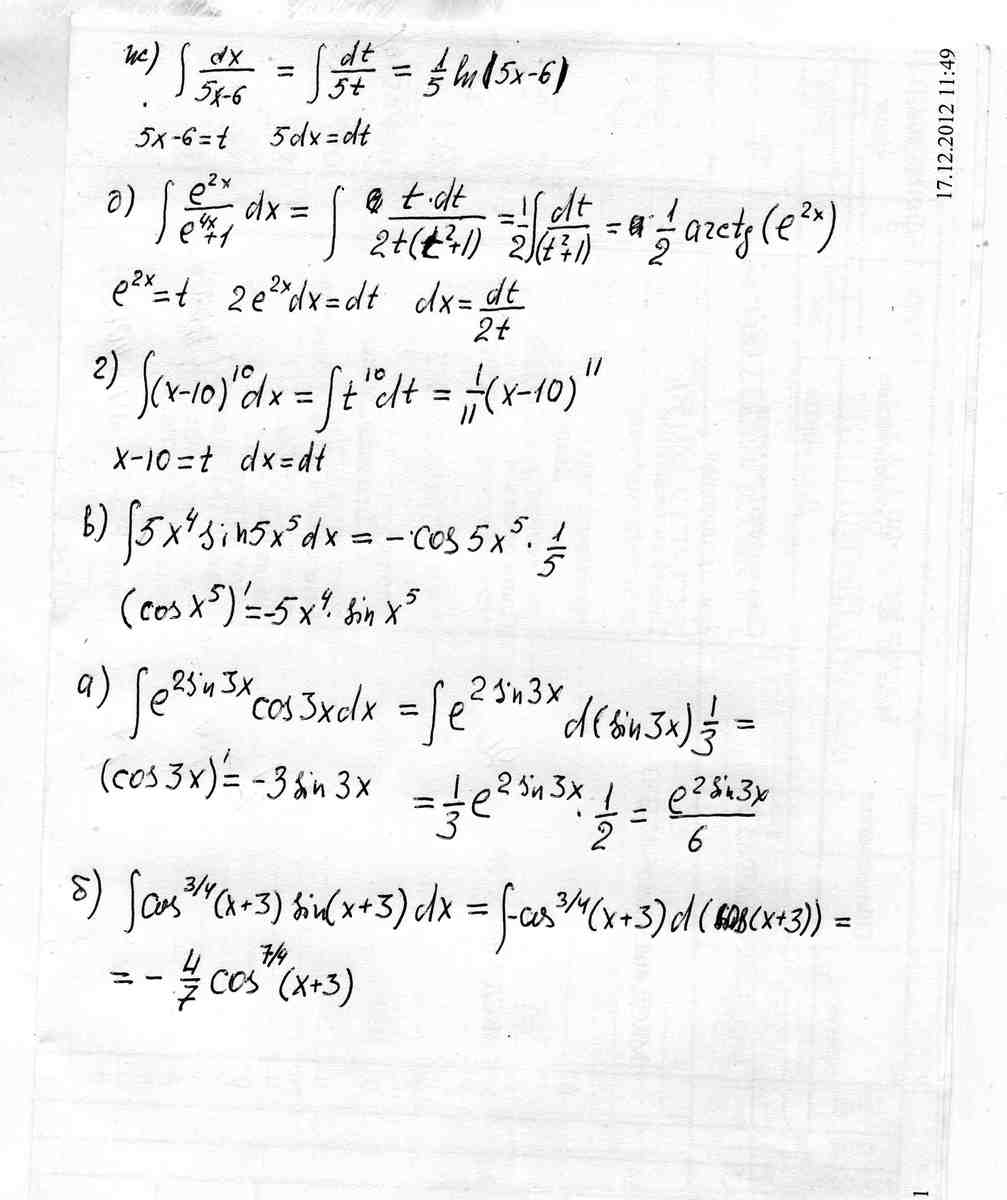 ж) ∫ dx/(5x-6) = ∫ dt/5t = 1/5 ln|5x-6|
5x-6=t 5dx=dt
д) ∫ e^(2x)/(e^(4x)+1) dx = ∫ t·dt/(2t(t²+1)) = 1/2 ∫ dt/(t²+1) = 1/2 arctg(e^(2x))
e^(2x)=t 2e^(2x)dx=dt dx=dt/2t
г) ∫(x-10)^10 dx = ∫t^10 dt = 1/11 (x-10)^11
x-10=t dx=dt
в) ∫5x⁴sin5x⁵dx = -cos5x⁵·1/5
(cos x⁵)'=-5x⁴·sin x⁵
а) ∫e^(2sin3x) cos3xdx = ∫e^(2sin3x) d(sin3x) 1/3 =
(cos3x)'= -3sin3x = 1/3 e^(2sin3x)·1/2 = e^(2sin3x)/6
б) ∫cos^(3/4)(x+3) sin(x+3) dx = ∫-cos^(3/4)(x+3) d(cos(x+3)) =
= - 4/7 cos^(7/4)(x+3)
17.12.2012 11:49
1